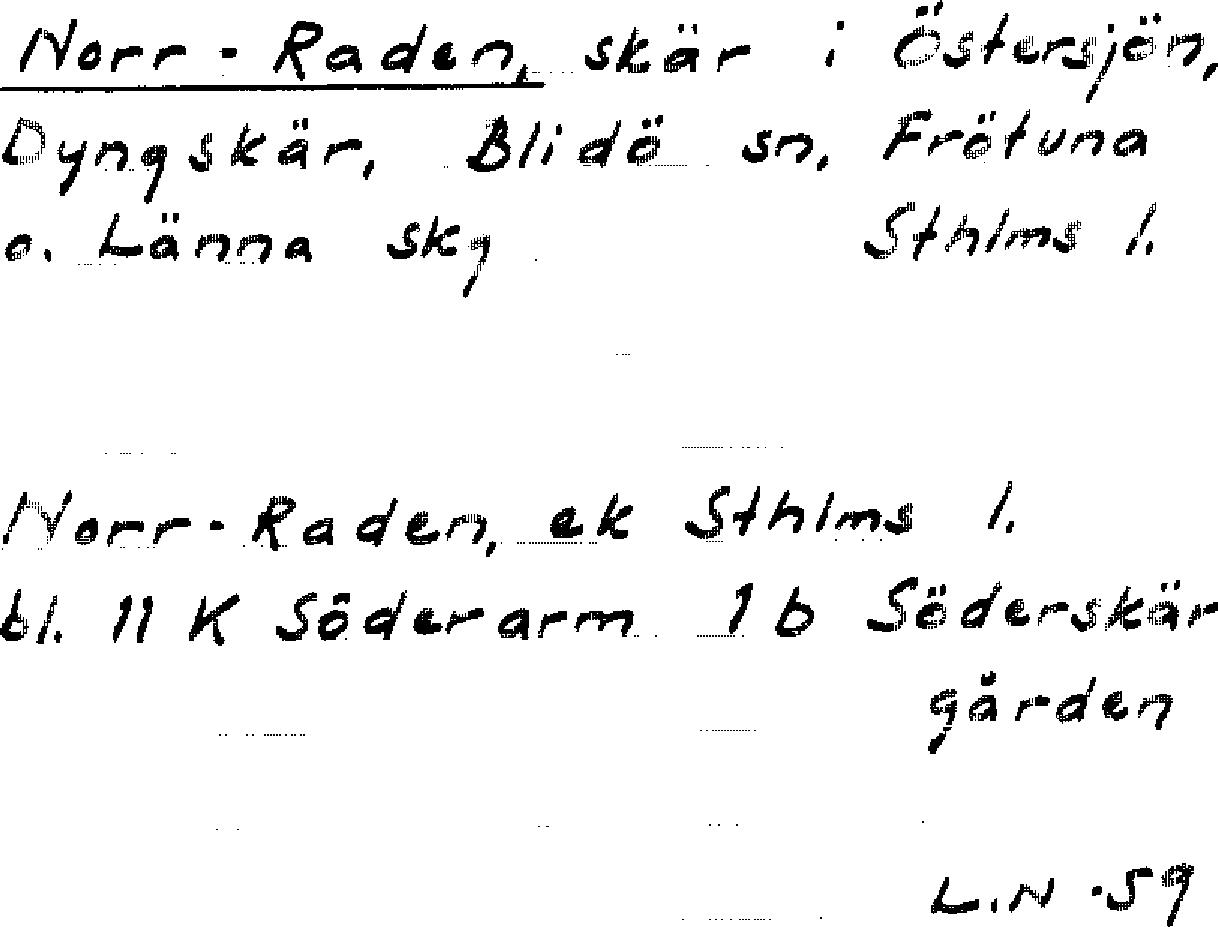 Norr-Raden, skär i Östersjön,
Dyngskär, Blidö sn, Frötuna
o. Länna skg Sthlms l.
Norr-Raden, ek Sthlms l.
bl. 11 K Söderarm 1 b Söderskär
gården
L.N -59